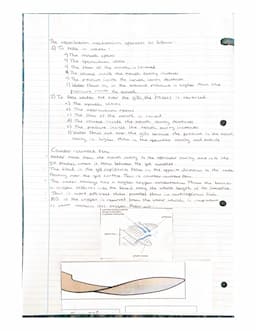 The ventilation mechanism operates as follows:
1) To take in water:
a) The mouth opens
b) The operculum closes
c) The floor of the mouth is lowered
d) The volume inside the mouth cavity increases
e) The pressure inside the mouth cavity decreases
f) Water flows in, as the external pressure is higher than the
pressure inside the mouth
2) To force water out over the gills, the process is reversed:
a) The mouth closes
b) The operculum opens
c) The floor of the mouth is raised
d) The volume inside the mouth cavity decreases
e) The pressure inside the mouth cavity increases
f) Water flows out over the gills because the pressure in the mouth
cavity is higher than in the opercular cavity and outside
Counter-current flow
Water moves from the mouth cavity to the opercular cavity and into the
gill pouches, where it flows between the gill lamellae
The blood in the gill capillaries flows in the opposite direction to the water
flowing over the gill surface. This is counter current flow
The water always has a higher oxygen concentration than the blood
so oxygen diffuses into the blood along the whole length of the lamellae
This is more efficient than parallel flow in cartilaginous fish
of the oxygen is removed from the water